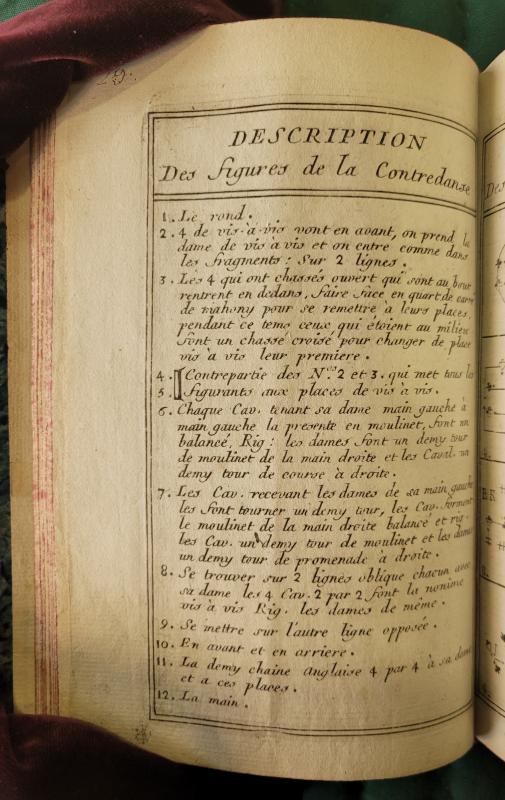 DESCRIPTION
Des figures de la Contredanse
1. Le rond.
2. 4 de vis-à-vis vont en avant, on prend la
dame de vis à vis et on entre comme dans
les fragments: Sur 2 lignes.
3. Les 4 qui ont chassés ouvert qui sont au bour
rentrent en dedans, faire face en quart de carré
de mahony pour se remettre à leurs places,
pendant ce tems ceux qui étoient au milieu
font un chassé croisé pour changer de place
vis à vis leur premiere.
4. Contrepartie des N.os 2 et 3. qui met tous les
5. figurants aux places de vis à vis.
6. Chaque Cav. tenant sa dame main gauche à
main gauche la presente en moulinet, font un
balancé, Rig: les dames font un demy tour
de moulinet de la main droite et les Caval. un
demy tour de course à droite.
7. Les Cav. recevant les dames de sa main gauche
les font tourner un demy tour, les Cav. forment
le moulinet de la main droite balancé et rig.
les Cav. un demy tour de moulinet et les dames
un demy tour de promenade à droite.
8. Se trouver sur 2 lignes oblique chacun avec
sa dame les 4 Cav. 2 par 2 font la nonime
vis à vis Rig. les dames de même.
9. Se mettre sur l'autre ligne opposée.
10. En avant et en arriere.
11. La demy chaine Anglaise 4 par 4 à sa dame
et a ces places.
12. La main.
Des